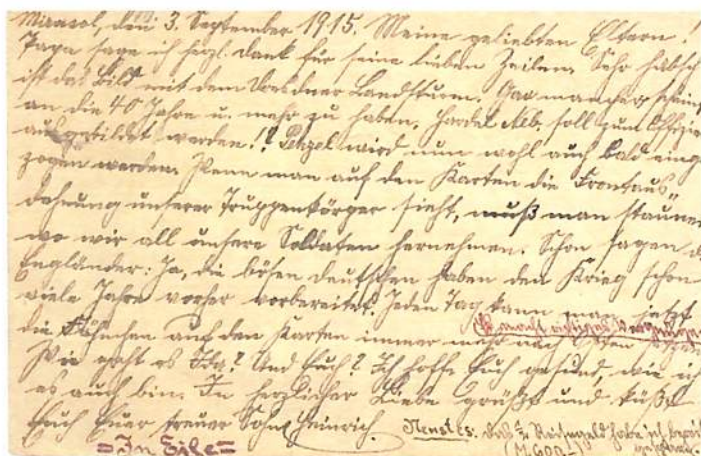 Mirasol, den 3. September 1915. Meine geliebten Eltern!
Papa sage ich herzl. Dank für seine lieben Zeilen. Sehr hübsch
ist das Bild mit dem Dresdner Landsturm. Gar mancher scheint
an die 40 Jahre u. mehr zu haben. soll zum Offizier
ausgebildet werden!? wird nun wohl auch bald einge-
zogen werden. Wenn man auf den Karten die Frontaus-
dehnung unserer Truppenkörper sieht, muß man staunen
wo wir all unsere Soldaten hernehmen. Schon sagen d
Engländer: Ja, die bösen Deutschen haben den Krieg schon
viele Jahre vorher vorbereitet. Jeden Tag kann man jetzt
Es macht richtiges Vergnügen
die Fähnchen auf den Karten immer mehr nach Osten
Wie geht es Ida? Und Euch? Ich hoffe Euch gesund, wie ich
es auch bin. In herzlicher Liebe grüßt und küßt
Euch Euer treuer Sohn Heinrich.
=In Eile=
Neustes: das ½ Reisegeld habe ich bereits
(M. 600.-) gespart.